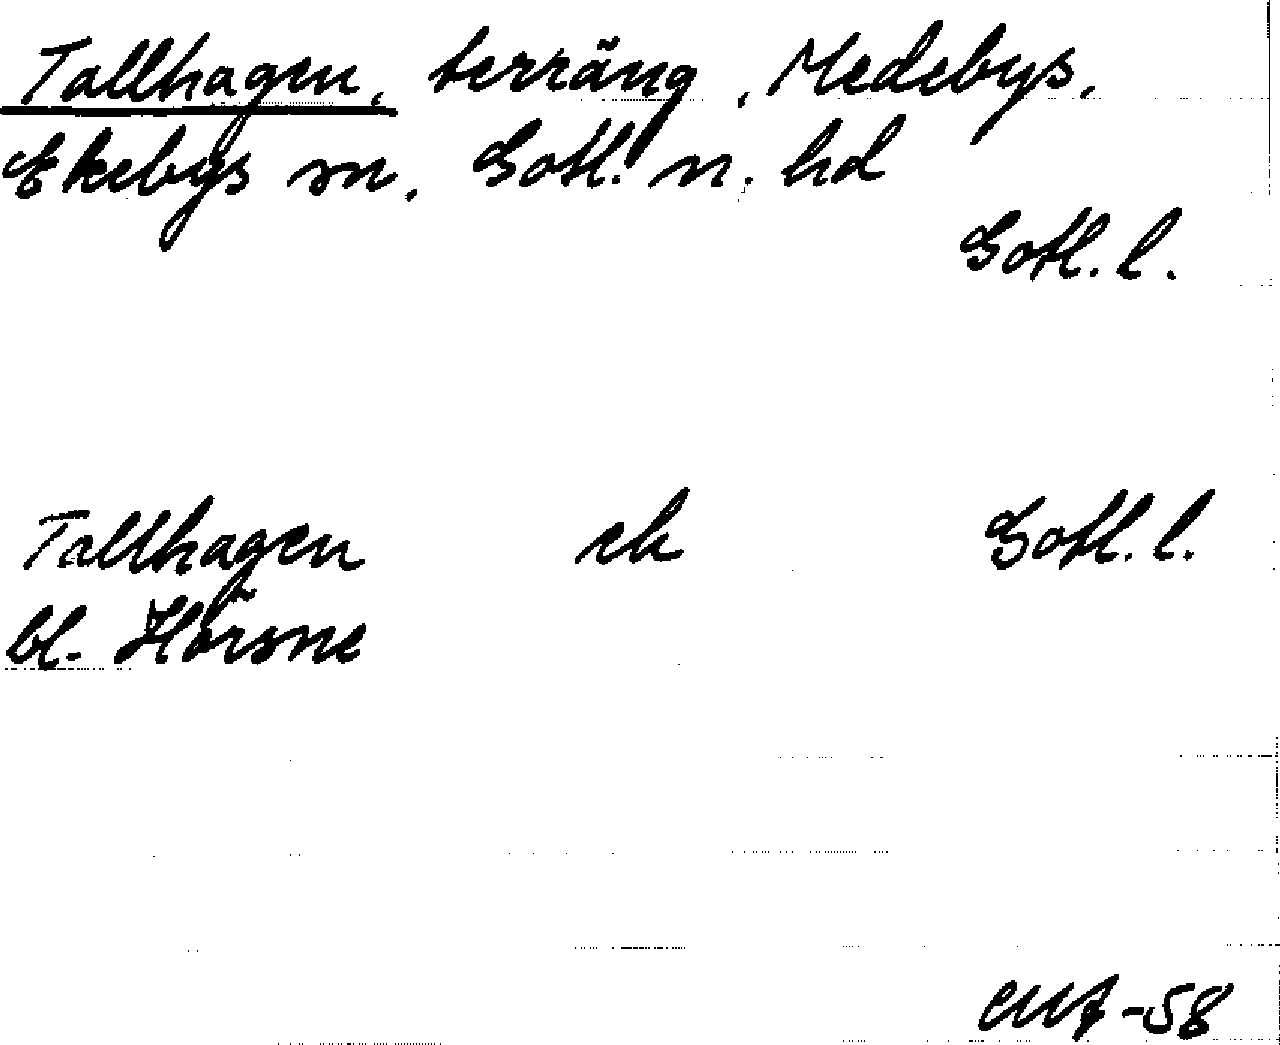 Tallhagen, terräng, Medebys,
Ekebys sn, Gotl. n. hd
Gotl. l.
Tallhagen ek Gotl. l.
bl. Hörsne
-58